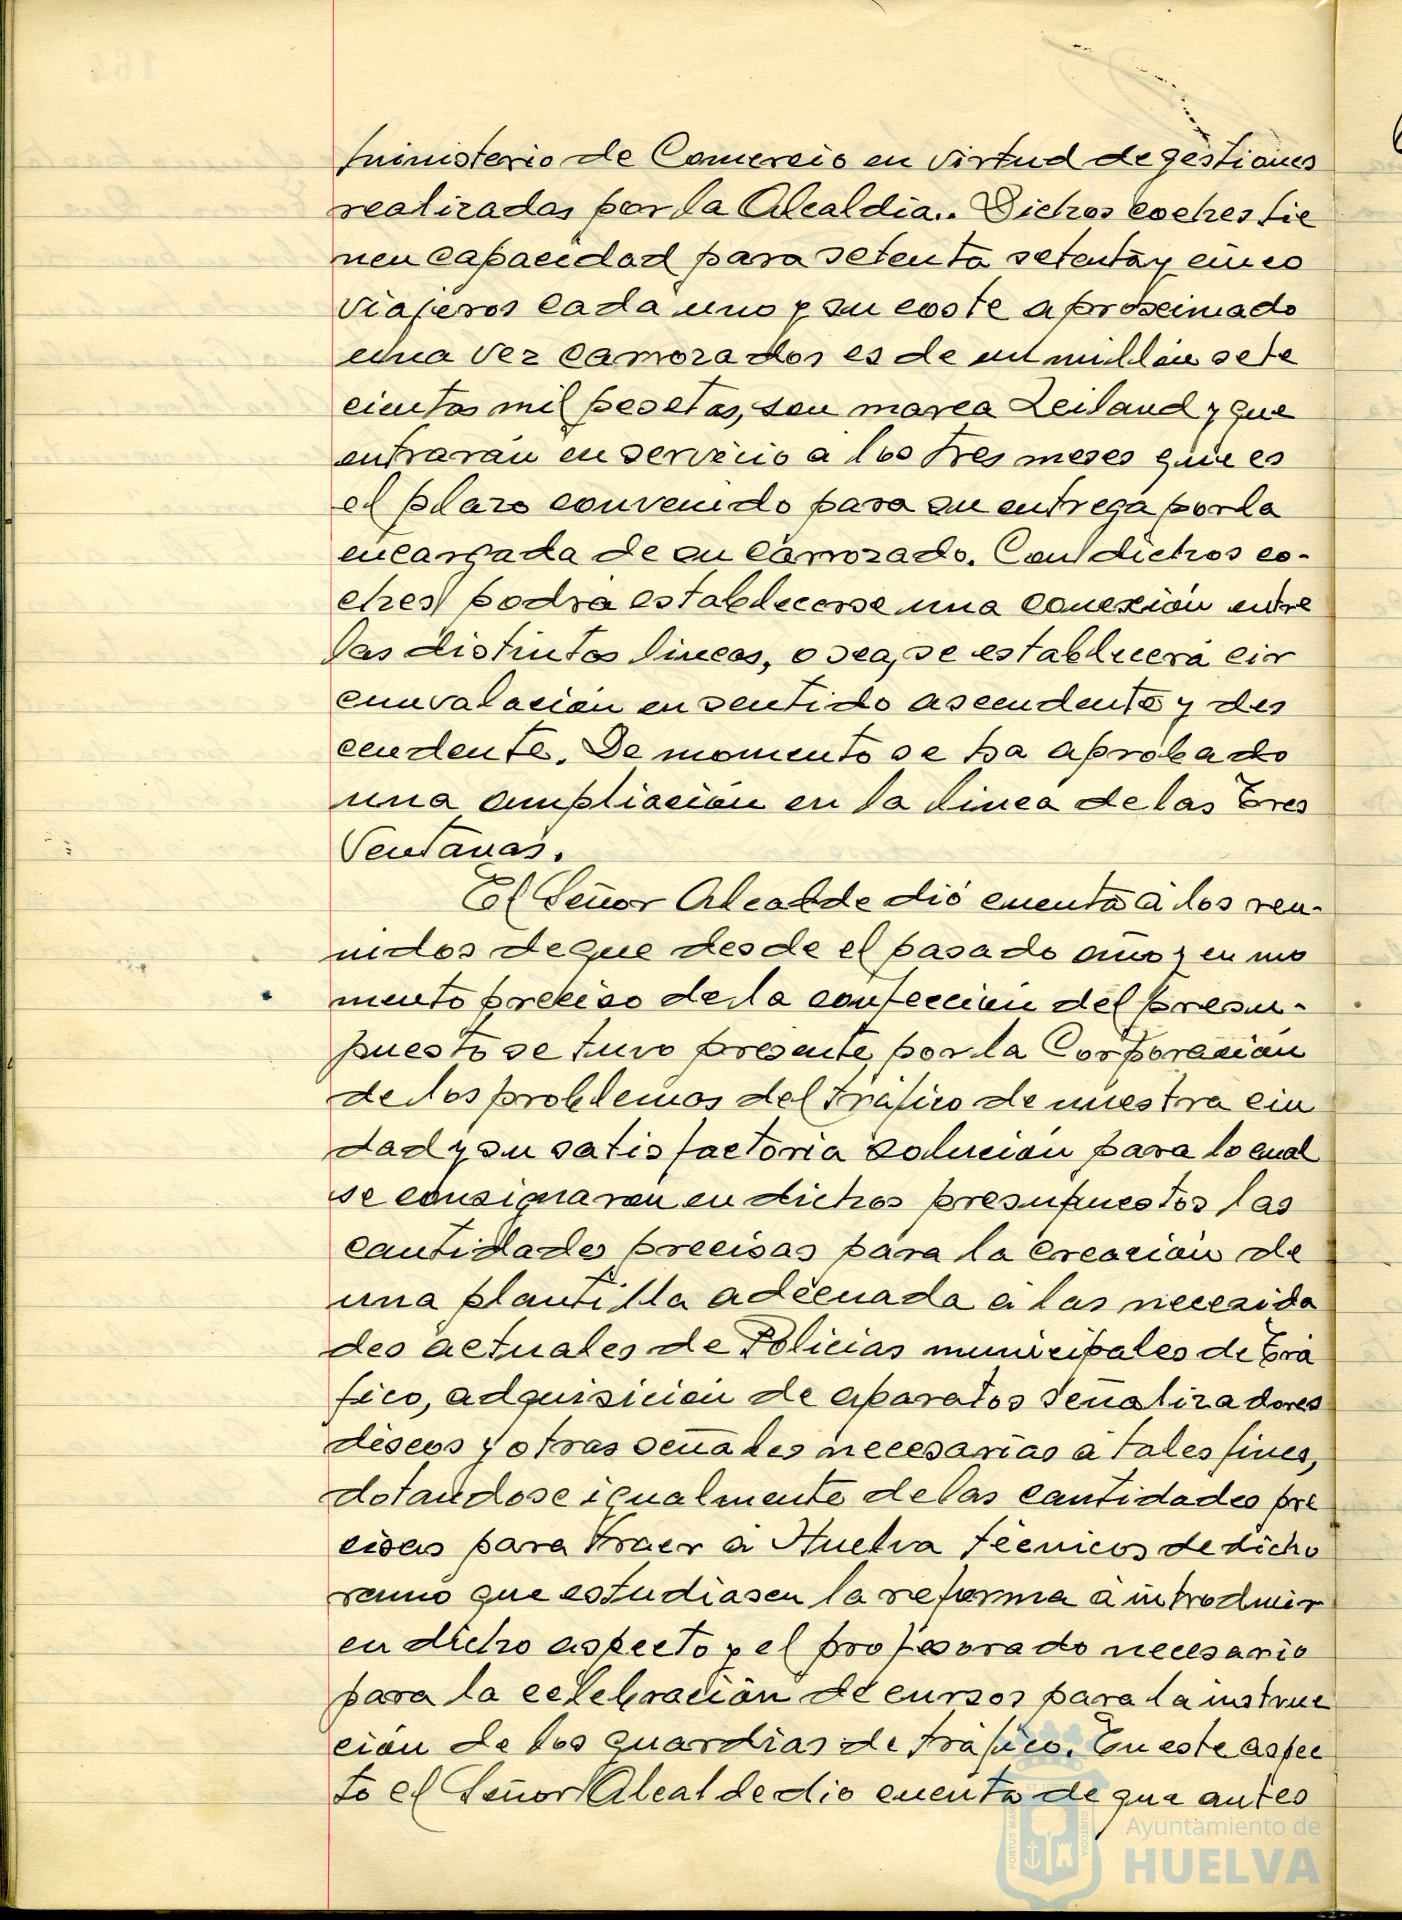 ministerio de Comercio en virtud de gestiones
realizadas por la Alcaldía.. Dichos coches tie
nen capacidad para setenta setenta y cinco
viajeros cada uno y su coste aproximado
una vez carrozados es de un millón sete
cientas mil pesetas, son marca Leiland y que
entrarán en servicio a los tres meses que es
el plazo convenido para su entrega por la
encargada de su carrozado. Con dichos co-
ches podrá establecerse una conexión entre
las distintas lineas, o sea, se establecerá cir
cunvalación en sentido ascendente y des
cendente. De momento se ha aprobado
una ampliación en la linea de las Tres
Ventanas.
El Señor Alcalde dió cuenta á los reu-
nidos de que desde el pasado año y en mo
mento preciso de la confección del presu-
puesto se tuvo presente por la Corporación
de los problemas del tráfico de nuestra ciu
dad y su satisfactoria solución para lo cual
se consignaron en dichos presupuestos las
cantidades precisas para la creación de
una plantilla adecuada á las necesida
des actuales de Policias municipales de Trá
fico, adquisición de aparatos señalizadores
discos y otras señales necesarias á tales fines,
dotandose igualmente de las cantidades pre
cisas para traer á Huelva técnicos de dicho
ramo que estudiasen la reforma á introducir
en dicho aspecto y el profesorado necesario
para la celebración de cursos para la instruc
ción de los guardias de tráfico. En este aspec
to el Señor Alcalde dio cuenta de que antes
Ayuntamiento de
HUELVA